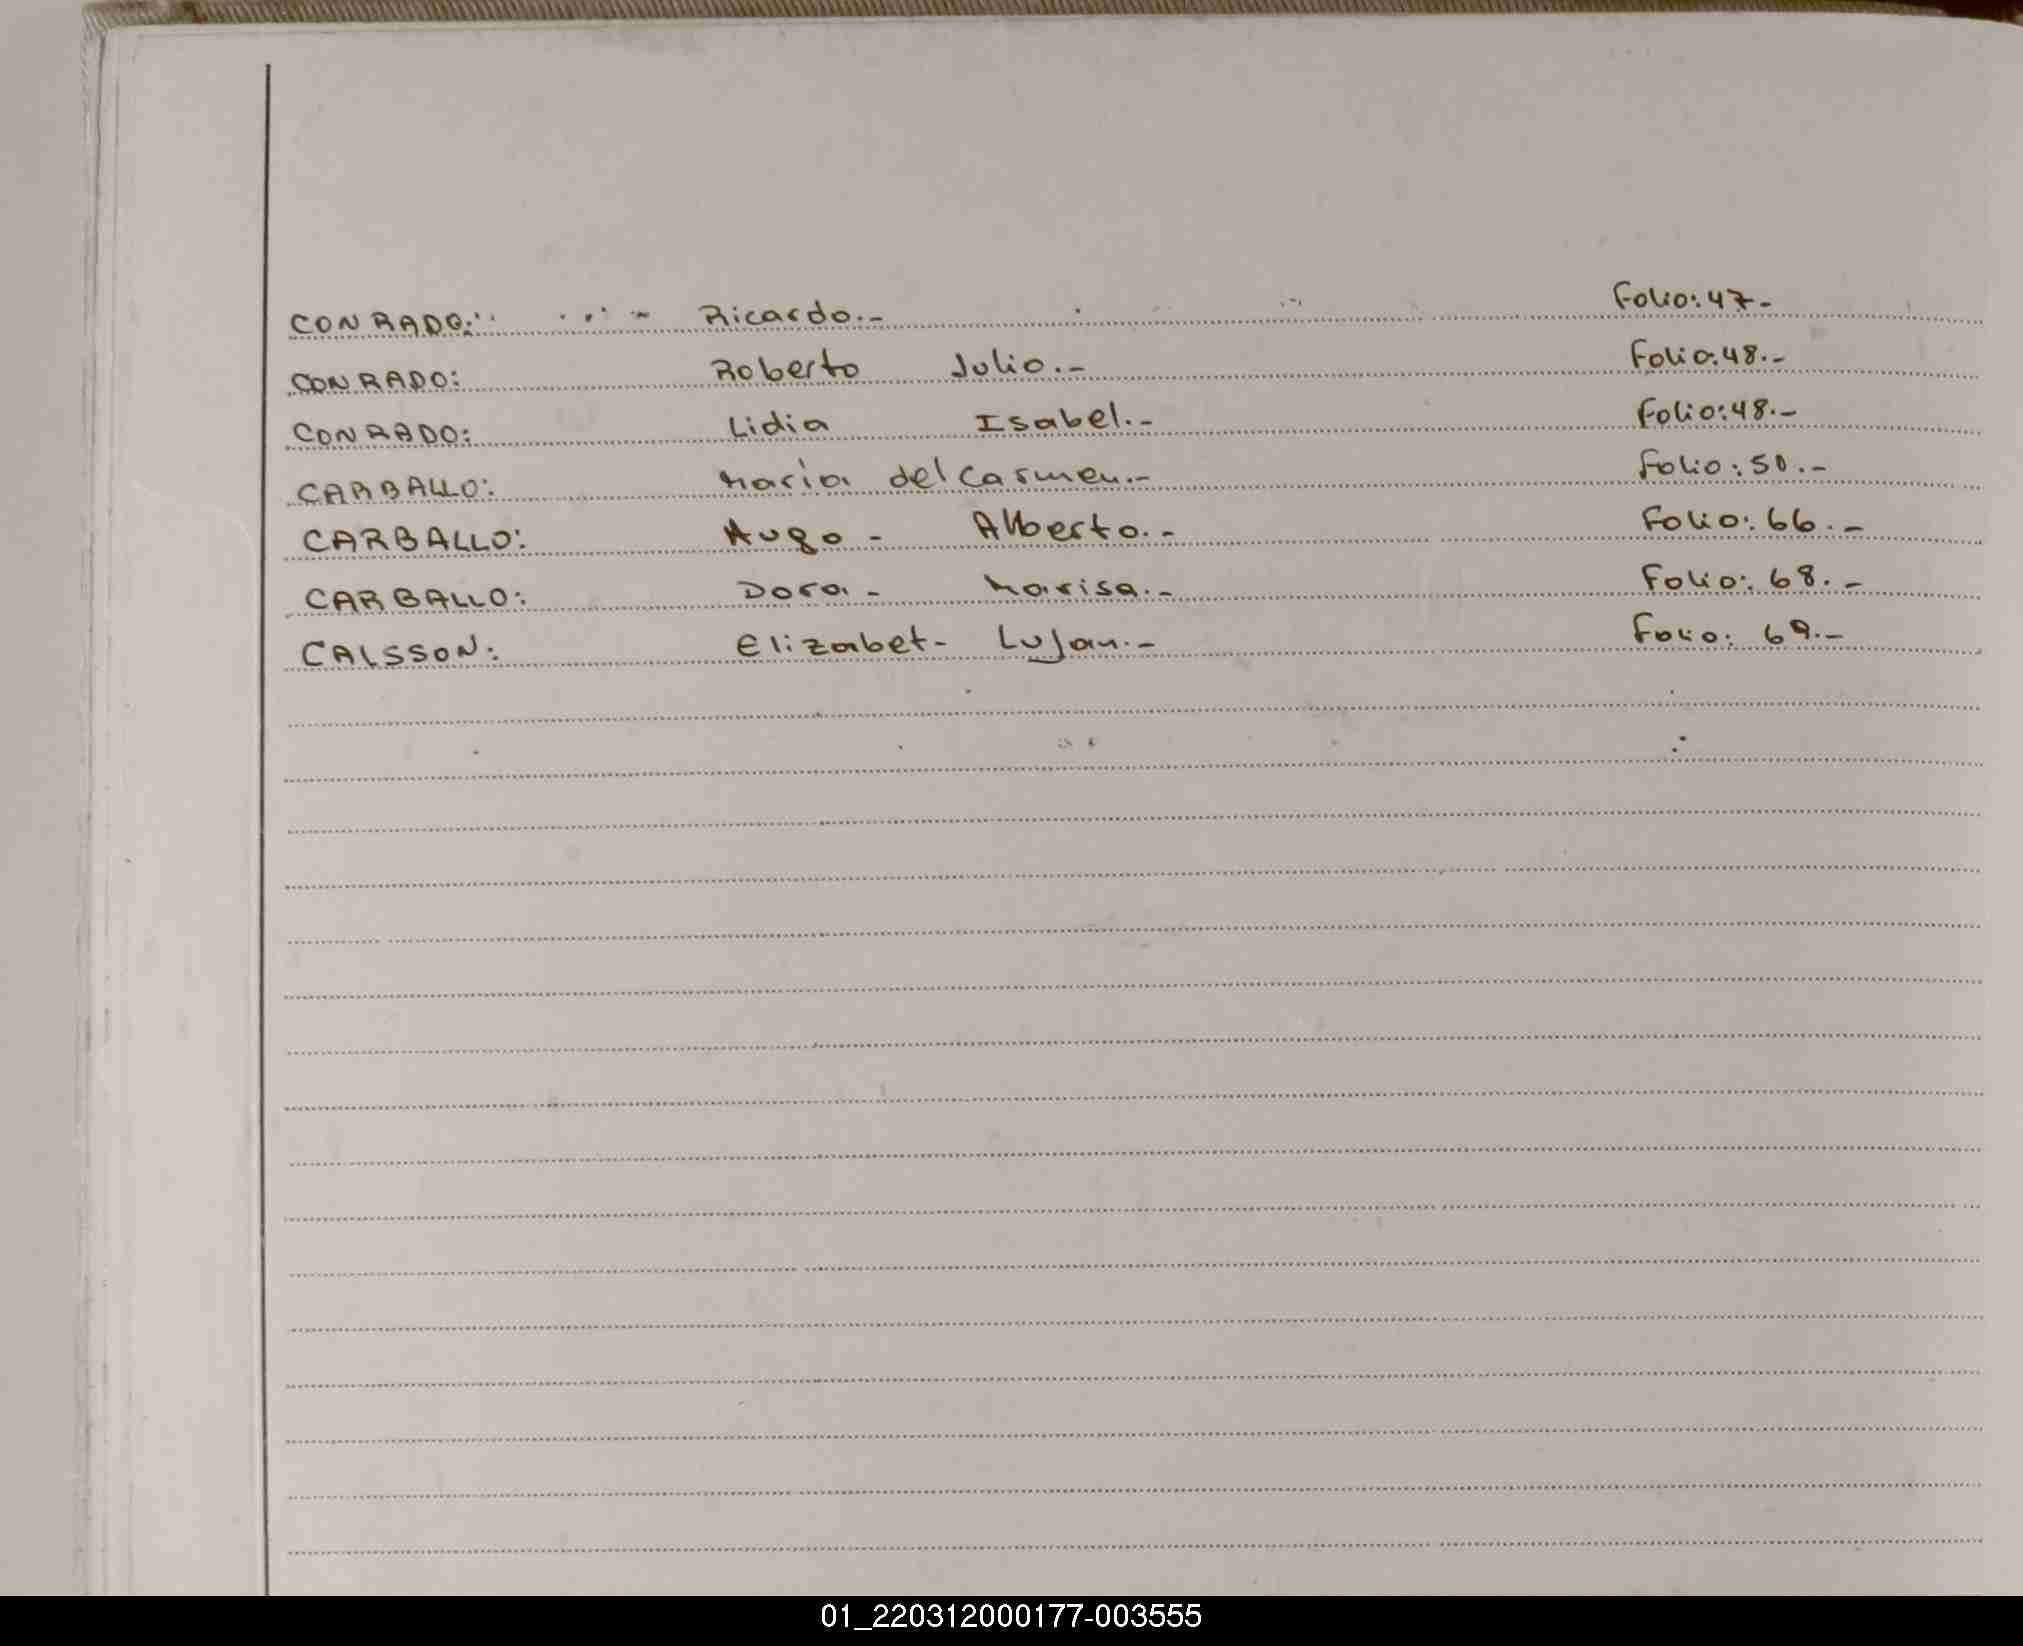 CONRADO: Ricardo.- Folio: 47-
CONRADO: Roberto Julio.- Folio: 48.-
CONRADO: Lidia Isabel.- Folio: 48.-
CARBALLO: Maria del Carmen.- Folio: 50.-
CARBALLO: Hugo - Alberto.- Folio: 66.-
CARBALLO: Dora - Marisa.- Folio: 68.-
CALSSON: Elizabet- Lujan.- Folio: 69.-
01_220312000177-003555